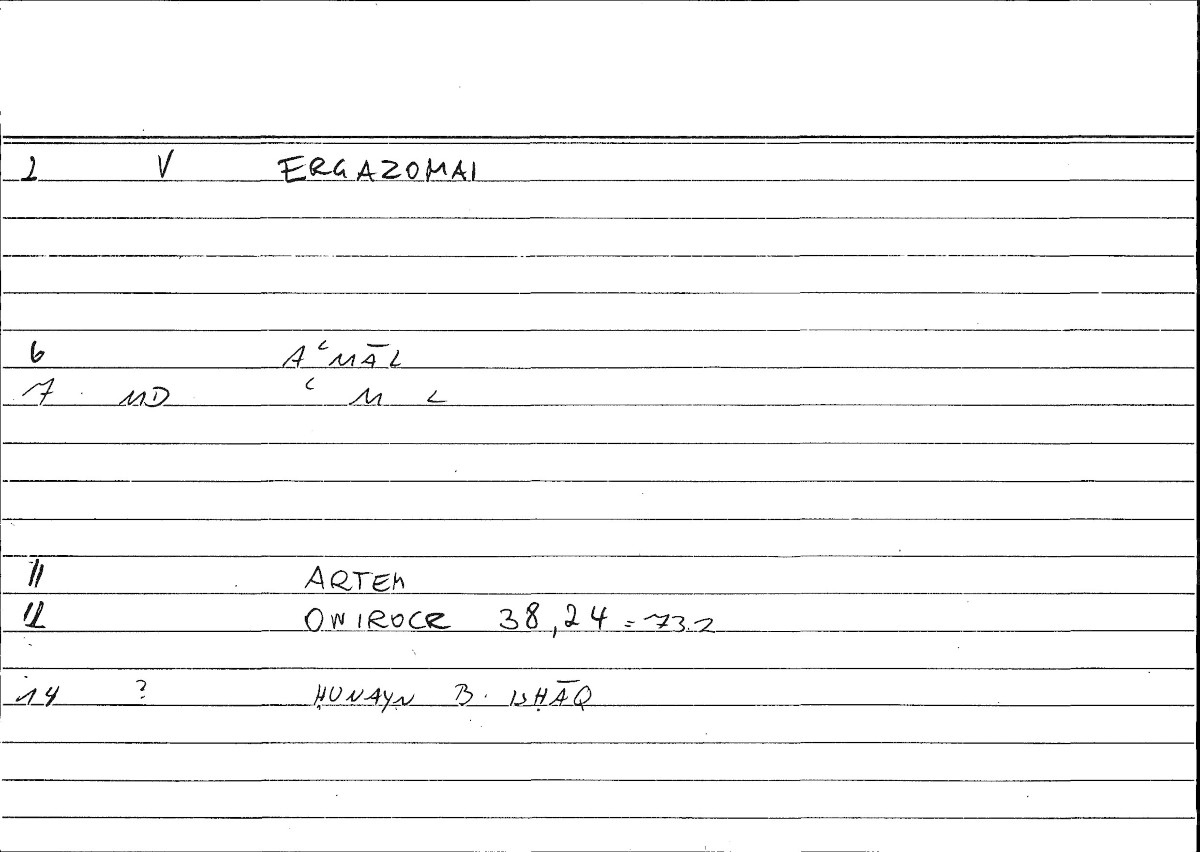 1 V ERGAZOMAI
6 AʿMĀL
7 MD ʿ M L
11 ARTEM
12 ONIROCR 38,24 = 73.2
14 ? ḤUNAYN B. ISḤĀQ